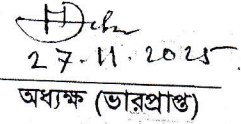 27.11.2025
অধ্যক্ষ (ভারপ্রাপ্ত)